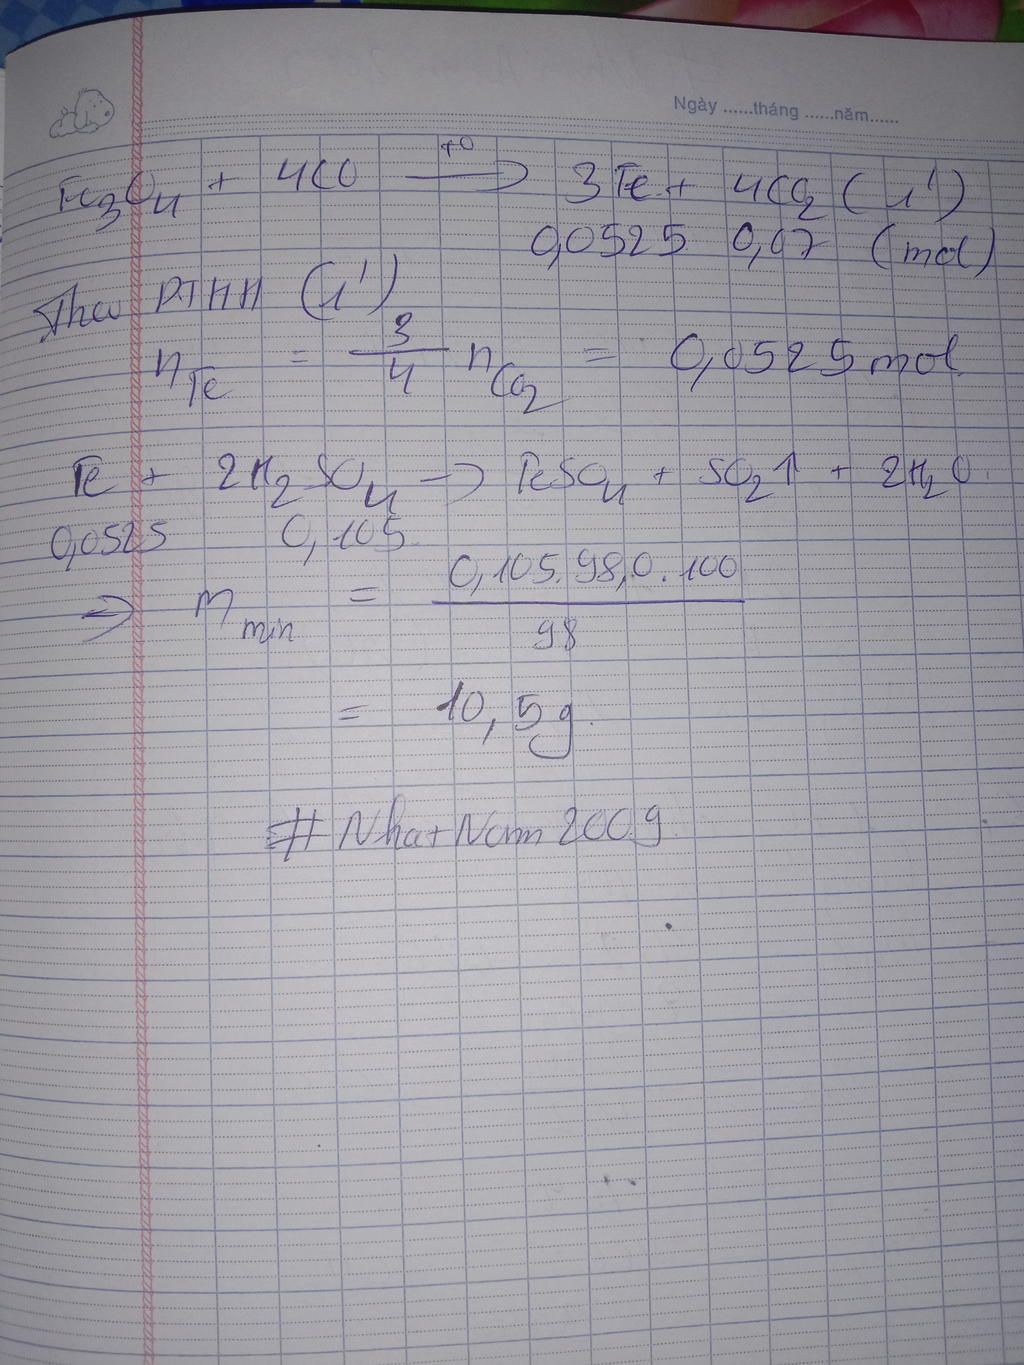 Ngày ......tháng ......năm......
Fe₃O₄ + 4CO —t⁰→ 3Fe + 4CO₂ (1')
0,0525 0,07 (mol)
Theo PTHH (1')
n_Fe = 3/4 n_CO₂ = 0,0525 mol
Fe + 2H₂SO₄ → FeSO₄ + SO₂↑ + 2H₂O
0,0525 0,105
⇒ m_min = 0,105.98,0.100 / 98
= 10,5g.
# NhatNam2009